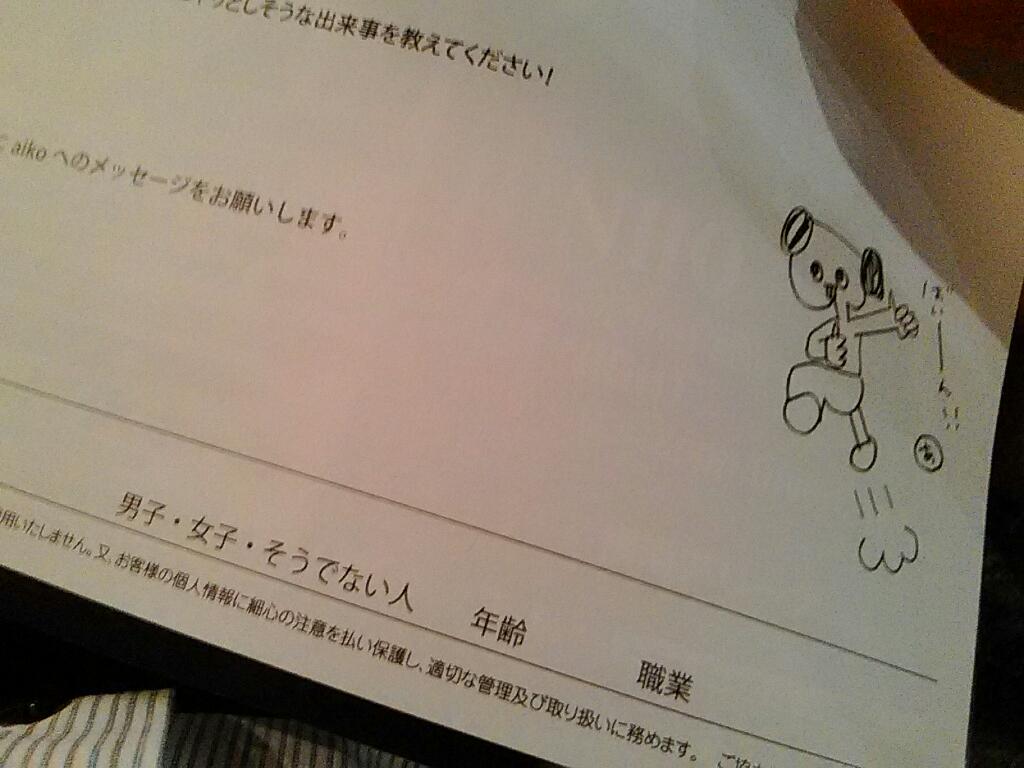 としそうな出来事を教えてください!
aikoへのメッセージをお願いします。
ばいーん!!
あ
男子・女子・そうでない人 年齢 職業
用いたしません。又、お客様の個人情報に細心の注意を払い保護し、適切な管理及び取り扱いに務めます。